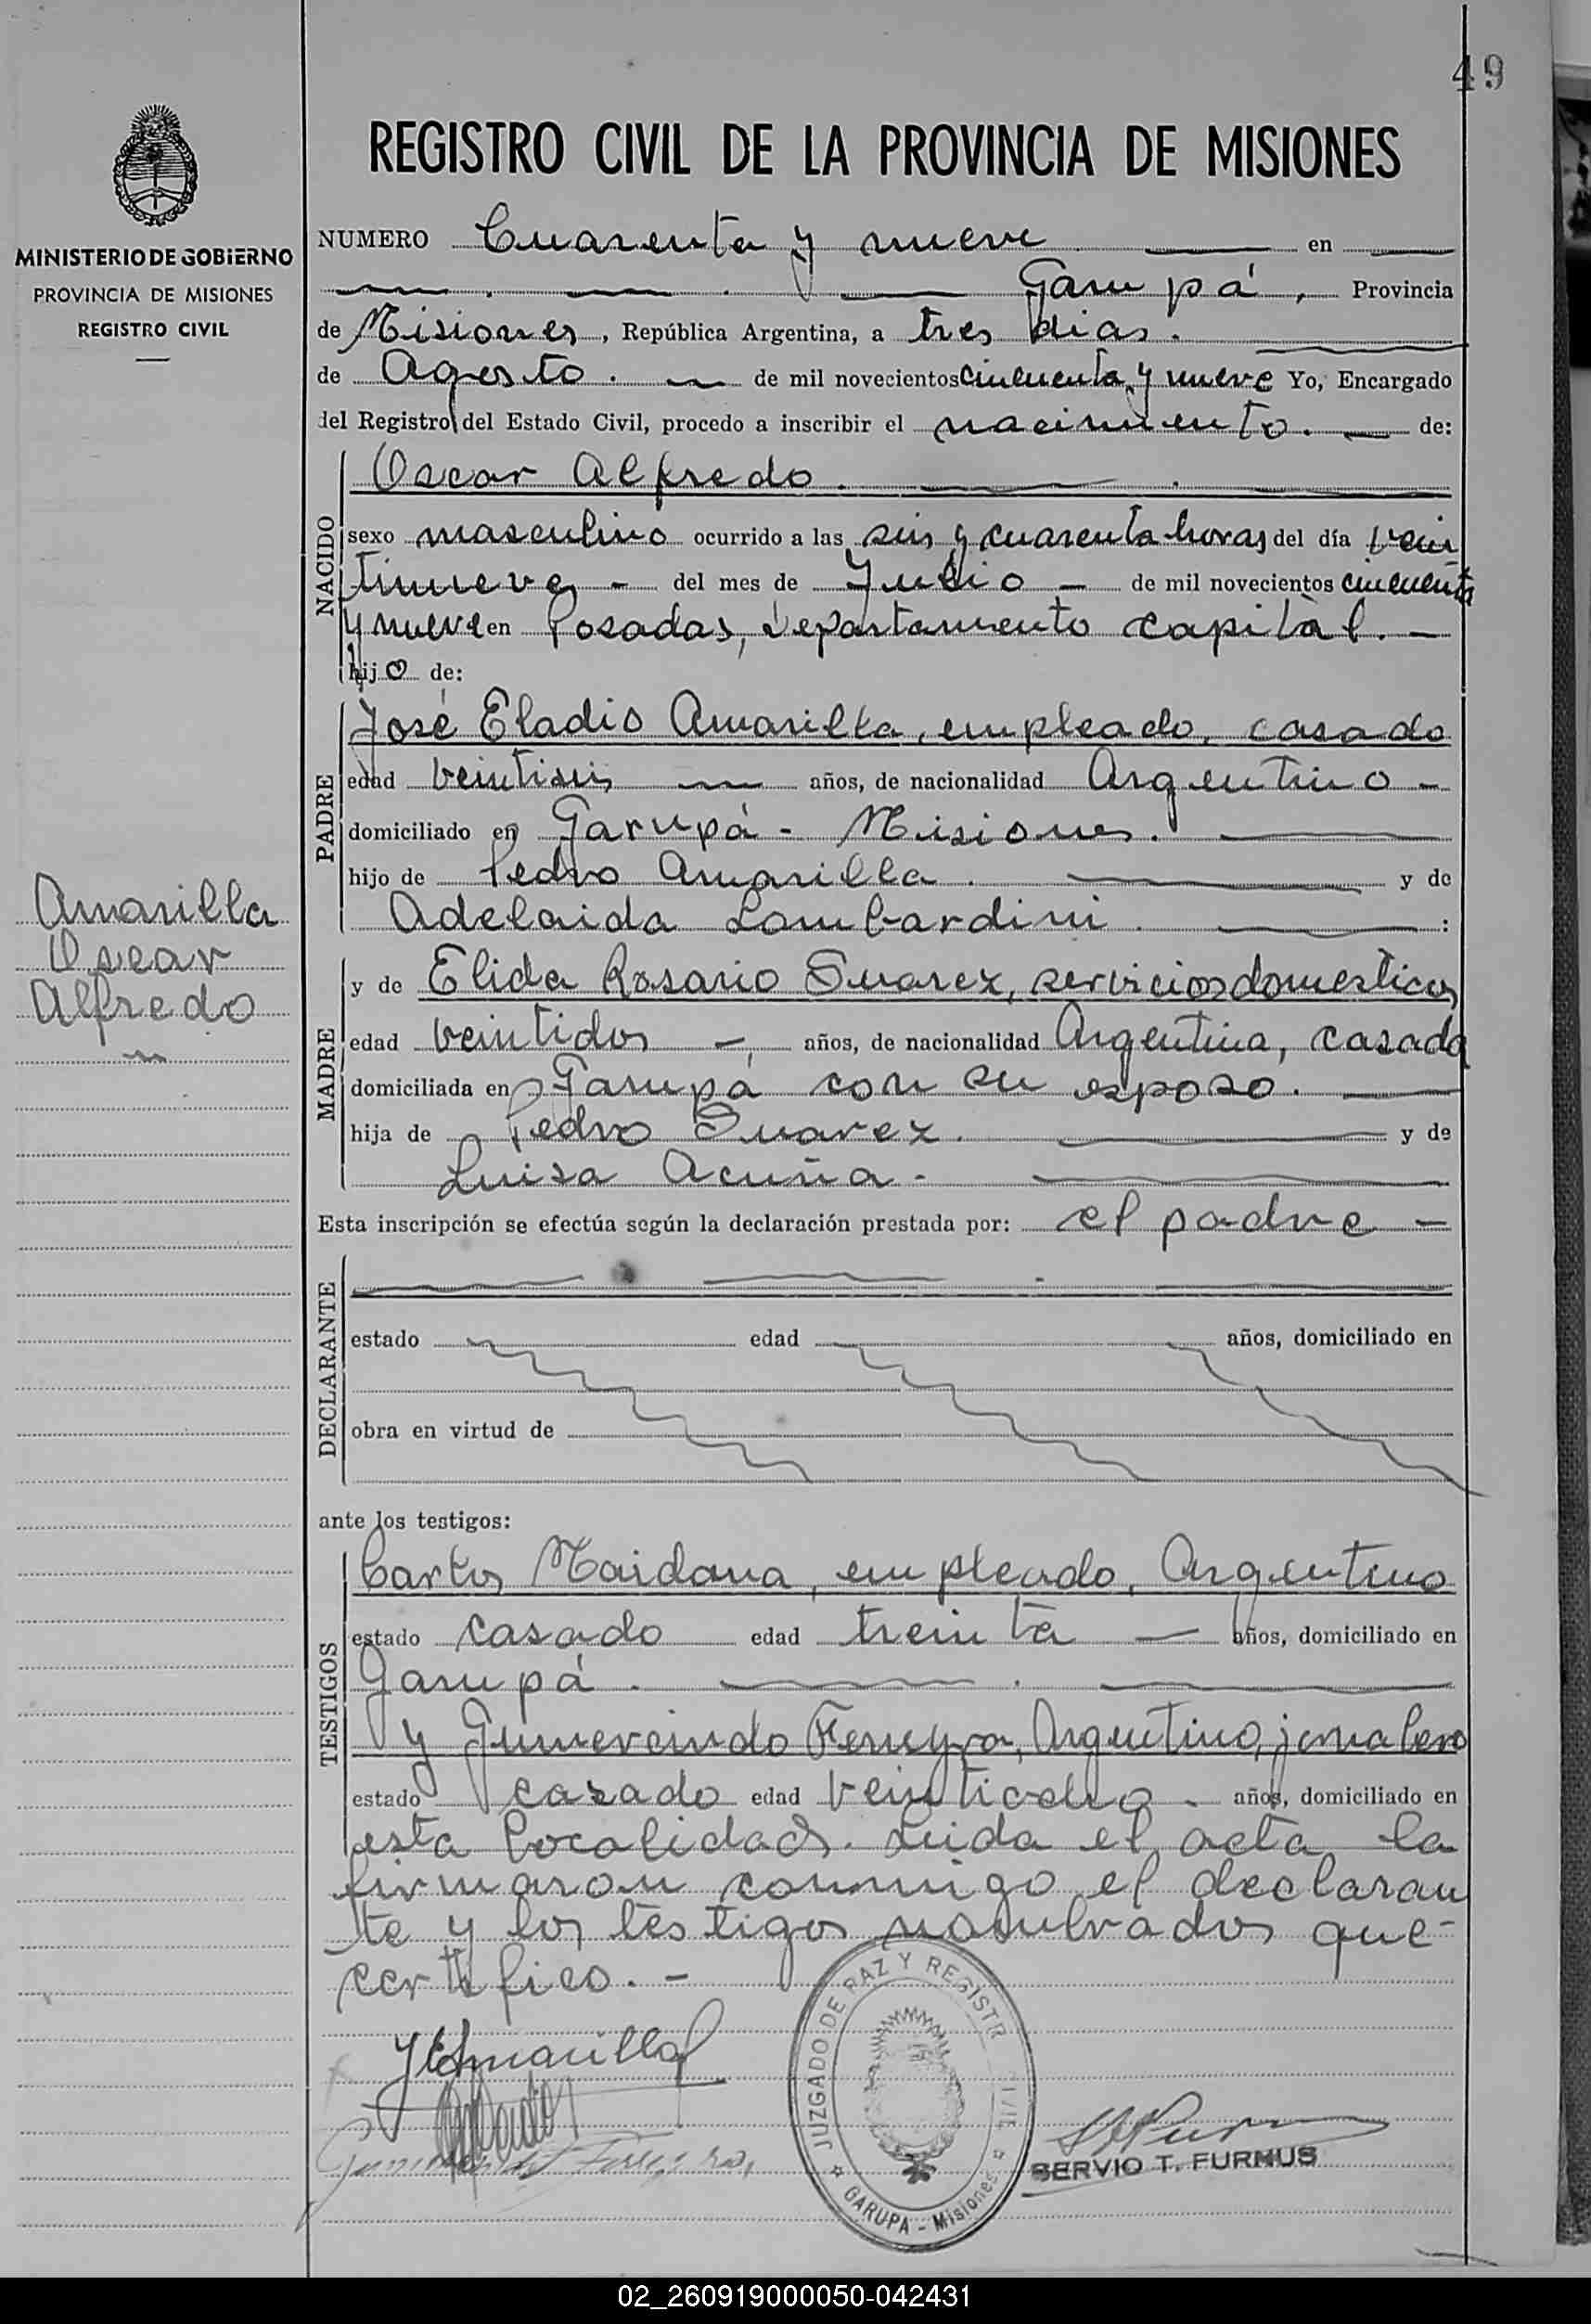 49
REGISTRO CIVIL DE LA PROVINCIA DE MISIONES
MINISTERIO DE GOBIERNO
PROVINCIA DE MISIONES
REGISTRO CIVIL
NUMERO Cuarenta y nueve en
Garupá, Provincia
de Misiones, República Argentina, a tres dias.
de Agosto. de mil novecientos cincuenta y nueve Yo, Encargado
del Registro del Estado Civil, procedo a inscribir el nacimiento. de:
NACIDO
Oscar Alfredo.
sexo masculino ocurrido a las seis y cuarenta horas del día vein
tinueve - del mes de Julio - de mil novecientos cincuenta
y nueve en Posadas, Departamento capital. -
hijo de:
PADRE
José Eladio Amarilla, empleado, casado
edad veintiseis años, de nacionalidad Argentino -
domiciliado en Garupá - Misiones.
hijo de Pedro Amarilla. y de
Adelaida Lombardini :
Amarilla
Oscar
Alfredo
MADRE
y de Elida Rosario Suarez, servicios domesticos
edad veintidos -, años, de nacionalidad Argentina, casada
domiciliada en Garupá con su esposo.
hija de Pedro Suarez. y de
Luisa Acuña -
Esta inscripción se efectúa según la declaración prestada por: el padre -
DECLARANTE
estado edad años, domiciliado en
obra en virtud de
ante los testigos:
TESTIGOS
Carlos Maidana, empleado, Argentino
estado casado edad treinta - años, domiciliado en
Garupá.
y Gumercindo Ferreyra, Argentino, jornalero
estado casado edad veintiocho - años, domiciliado en
esta localidad. Leida el acta la
firmaron conmigo el declaran
te y los testigos nombrados que-
certifico. -
JEAmarilla
JUZGADO DE PAZ Y REGISTR CIVIL
GARUPA - Misiones
SERVIO T. FURNUS
02_260919000050-042431